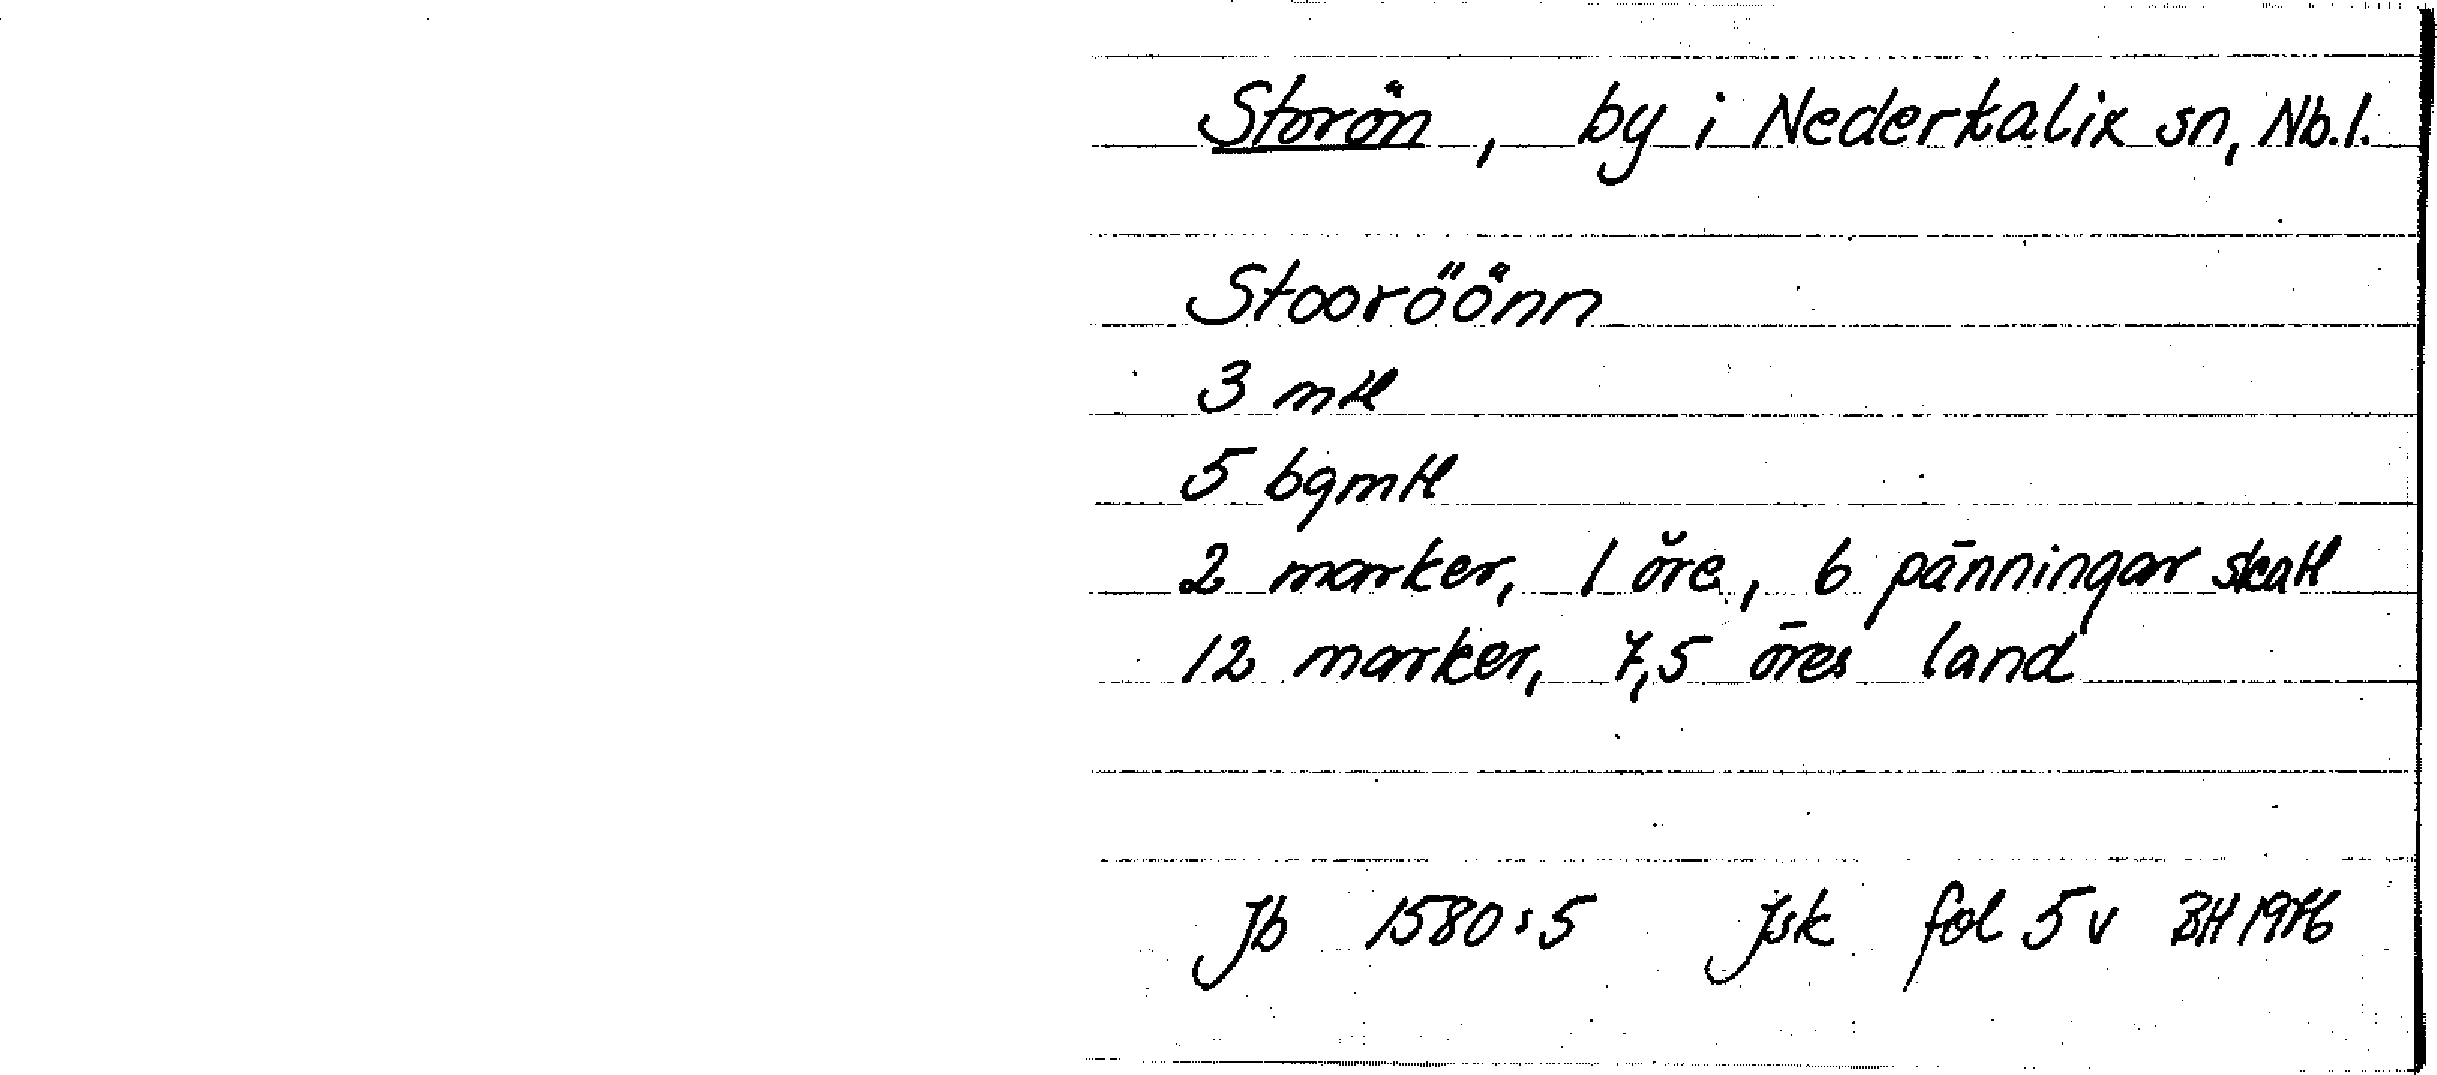 Storön, by i Nederkalix sn, Nb.l.
Stooröönn
3 mtl
5 bgmtl
2 marker, 1 öre, 6 pänningar skatt
12 marker, 7,5 öres land
Jb 1580:5 jsk fol 5v BH 1976